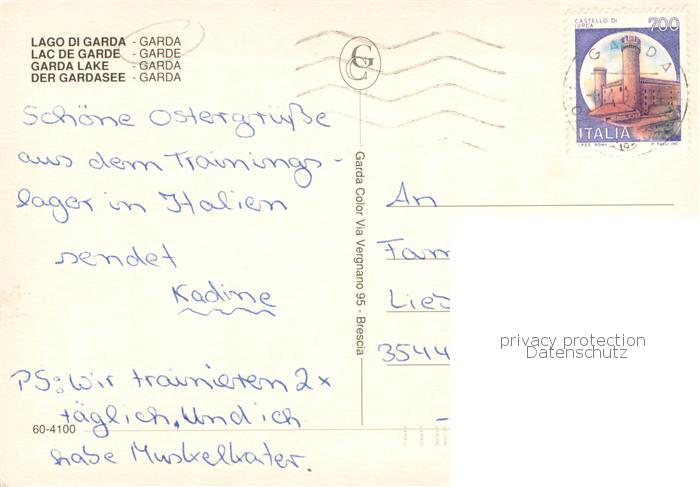 LAGO DI GARDA - GARDA
LAC DE GARDE - GARDE
GARDA LAKE - GARDA
DER GARDASEE - GARDA
Schöne Ostergrüße
aus dem Trainings-
lager in Italien
sendet
Kadine
PS: Wir trainieren 2x
täglich, Und ich
habe Muskelkater.
60-4100
GC
Garda Color Via Vergnano 95 - Brescia
CASTELLO DI
IVREA
700
ITALIA
I.P.Z.S. ROMA
F. TULLI INC.
GARDA
An
Fam
Lied
3544
privacy protection
Datenschutz